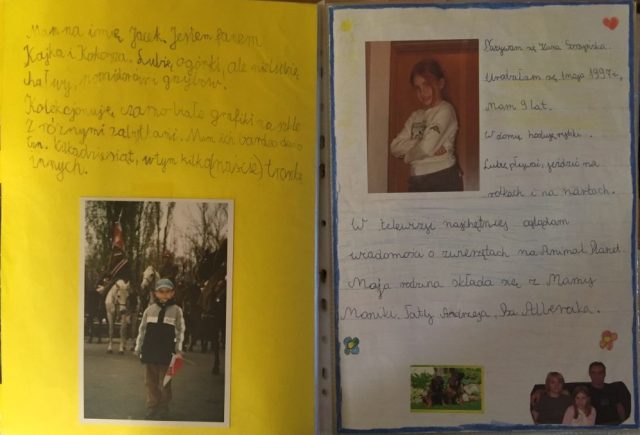 Mam na imię Jacek. Jestem fanem
Kajka i Kokosza. Lubię ogórki, ale nie lubię
chałwy, pomidorów i grzybów.
Kolekcjonuję czarno-białe grafiki na szkle
z różnymi zabytkami. Mam ich bardzo dużo
kilkadziesiąt, w tym kilka(naście)
innych.
Nazywam się
Urodziłam się 1 maja 1997 r.
Mam 9 lat.
W domu hoduję rybki.
Lubię pływać, jeździć na
rolkach i na nartach.
W telewizji najchętniej oglądam
wiadomości o zwierzętach na Animal Planet.
Moja rodzina składa się z Mamy
Moniki, Taty Andrzeja, Psa